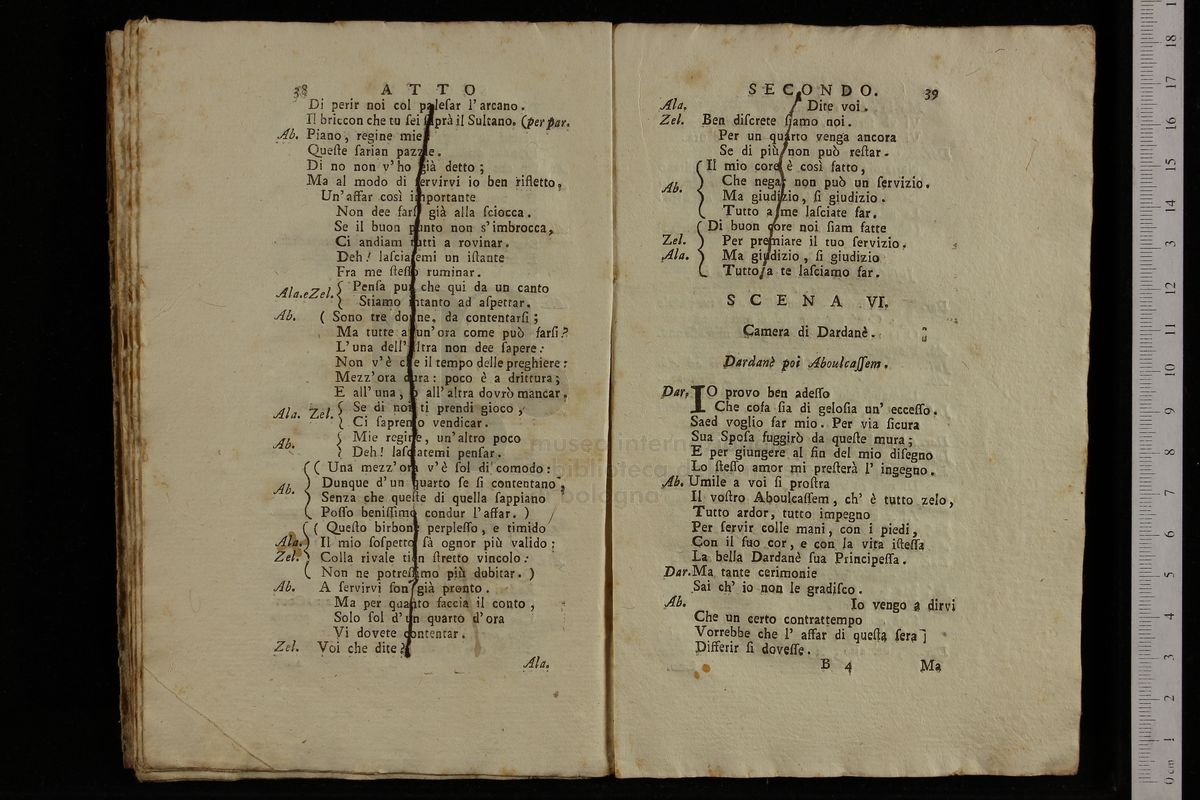 38 ATTO
Di perir noi col palesar l'arcano.
Il briccon che tu sei saprà il Sultano. (per par.
Ab. Piano, regine mie
Queste sarian pazzie.
Di no non v'ho già detto;
Ma al modo di servirvi io ben rifletto,
Un'affar così importante
Non dee farsi già alla sciocca.
Se il buon punto non s'imbrocca,
Ci andiam tutti a rovinar.
Deh! lasciatemi un istante
Fra me stesso ruminar.
Ala. e Zel. { Pensa pur che qui da un canto
Stiamo intanto ad aspettar.
Ab. ( Sono tre donne, da contentarsi;
Ma tutte a un'ora come può farsi?
L'una dell'altra non dee sapere:
Non v'è che il tempo delle preghiere:
Mezz'ora dura: poco è a drittura;
E all'una, o all'altra dovrò mancar,
Ala. Zel. { Se di noi ti prendi gioco,
Ci sapremo vendicar.
Ab. { Mie regine, un'altro poco
Deh! lasciatemi pensar.
Ab. { ( Una mezz'ora v'è sol di comodo:
Dunque d'un quarto se si contentano,
Senza che queste di quella sappiano
Posso benissimo condur l'affar. )
Ala. Zel. { ( Questo birbone perplesso, e timido
Il mio sospetto fà ognor più valido;
Colla rivale tien stretto vincolo:
Non ne potressimo più dubitar. )
Ab. A servirvi son già pronto.
Ma per quanto faccia il conto,
Solo sol d'un quarto d'ora
Vi dovete contentar.
Zel. Voi che dite?
Ala.
SECONDO. 39
Ala. Dite voi.
Zel. Ben discrete siamo noi.
Per un quarto venga ancora
Se di più non può restar.
Ab. { Il mio core è così fatto,
Che negar non può un servizio.
Ma giudizio, si giudizio.
Tutto a me lasciate far.
Zel. Ala. { Di buon core noi siam fatte
Per premiare il tuo servizio.
Ma giudizio, si giudizio
Tutto a te lasciamo far.
SCENA VI.
Camera di Dardanè.
Dardanè poi Aboulcassem.
Dar. IO provo ben adesso
Che cosa sia di gelosia un'eccesso.
Saed voglio far mio. Per via sicura
Sua Sposa fuggirò da queste mura;
E per giungere al fin del mio disegno
Lo stesso amor mi presterà l'ingegno.
Ab. Umile a voi si prostra
Il vostro Aboulcassem, ch'è tutto zelo,
Tutto ardor, tutto impegno
Per servir colle mani, con i piedi,
Con il suo cor, e con la vita istessa
La bella Dardanè sua Principessa.
Dar. Ma tante cerimonie
Sai ch'io non le gradisco.
Ab. Io vengo a dirvi
Che un certo contrattempo
Vorrebbe che l'affar di questa sera
Differir si dovesse.
B 4 Ma